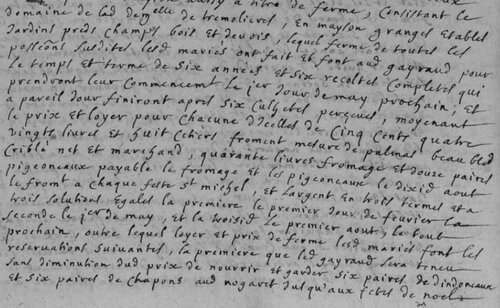 domaine de lad. delle de tremolieres, en mayson granges Estables
Jardins preds champs bois et devois, lequel ferme de toutes les
possēons susdites lesd mariés ont fait et font aud gayraud pour
le temps et terme de six années et six recoltes completes qui
prendront leur commencemt le jer Jour de may prochain, et
a pareil Jour finiront apres six cullietes perçeues, moyenant
le prix et loyer pour chacune d'Icelles de Cinq Cents quatre
vingts livres et huit cetiers froment mesure de palmas beau bled
criblé net et marchand, quarante livres fromage et douze paires
pigeoneaux payable le fromage et les pigeoneaux le dixie aout
le froment a chaque feste st michel, et Largent en trois termes et a
trois solutions Egales la premiere le premier Jour de fevrier la
seconde le jer de may, et la troisie le premier aout, le tout
prochain, outre lequel loyer et prix de ferme lesd mariés font les
reservations suivantes, la premiere que led gayraud sera tenu
sans diminution dud prix de nourrir et garder six paires de dindoneaux
et six paires de chapons aud nogaret Jusqu'aux fetes de noel